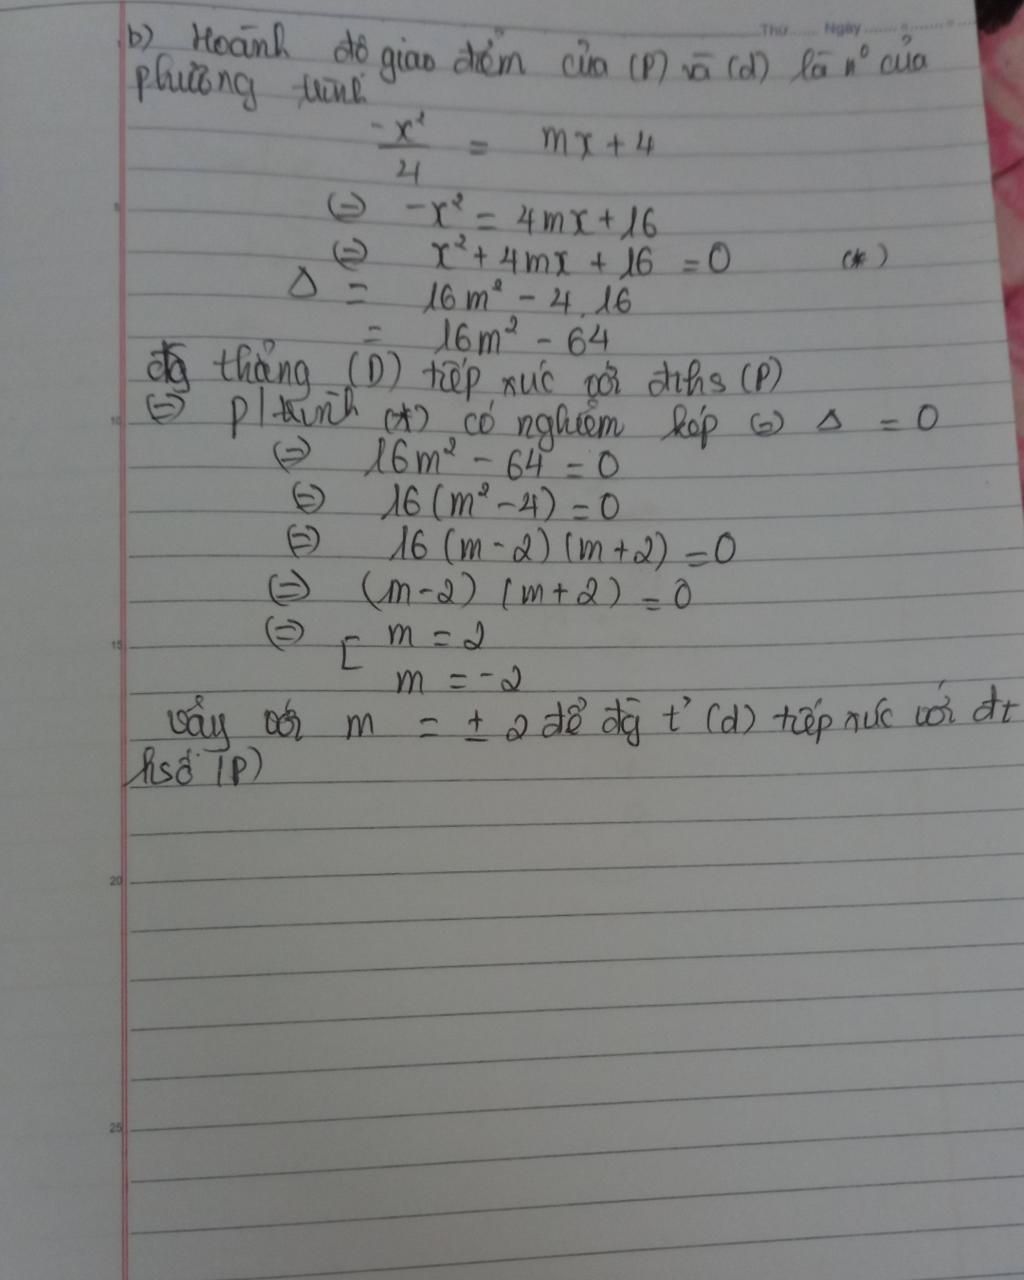 Thứ ...... Ngày ...................
b) Hoành độ giao điểm của (P) và (d) là n⁰ của
phương trình
-x²/4 = mx + 4
(=) -x² = 4mx + 16
(=) x² + 4mx + 16 = 0 (*)
Δ = 16m² - 4.16
= 16m² - 64
đg thẳng (D) tiếp xúc với đths (P)
(=) p/trình (*) có nghiệm kép (=) Δ = 0
(=) 16m² - 64 = 0
(=) 16(m² - 4) = 0
(=) 16(m-2)(m+2) = 0
(=) (m-2)(m+2) = 0
(=) [ m = 2
m = -2
vậy với m = ± 2 để đg t² (d) tiếp xúc với đt
hsố (P)
5
10
15
20
25